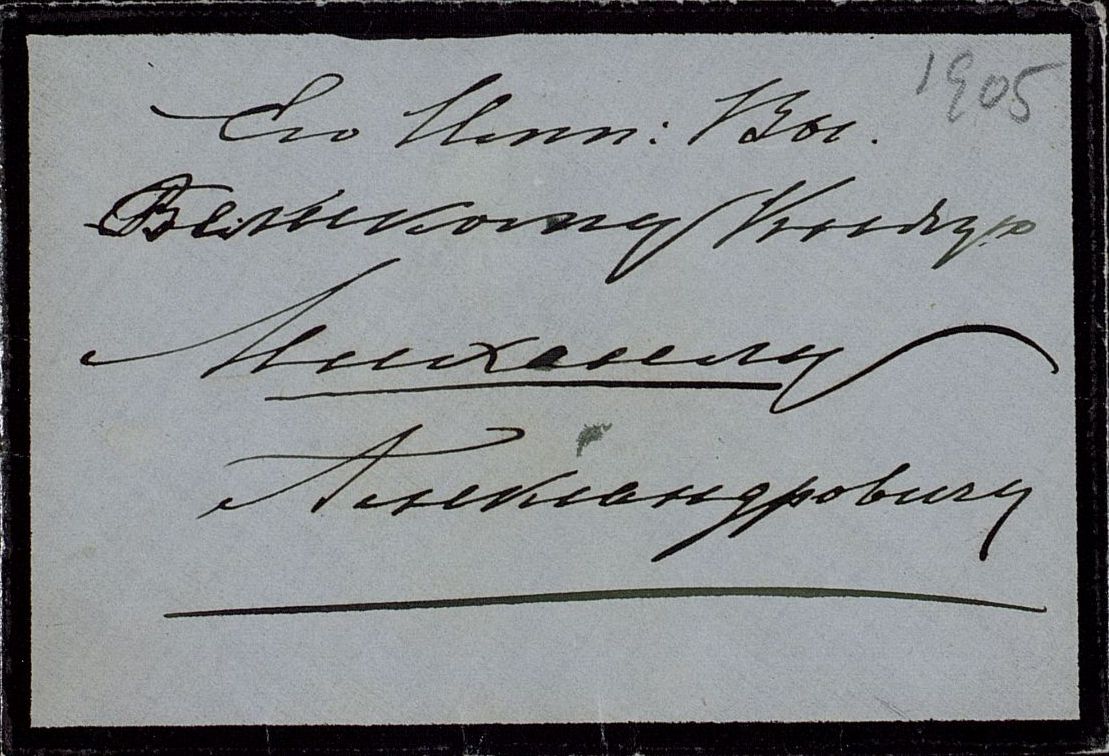 1905
Его Имп: Вы.
Великому Князю
Михаилу
Александровичу